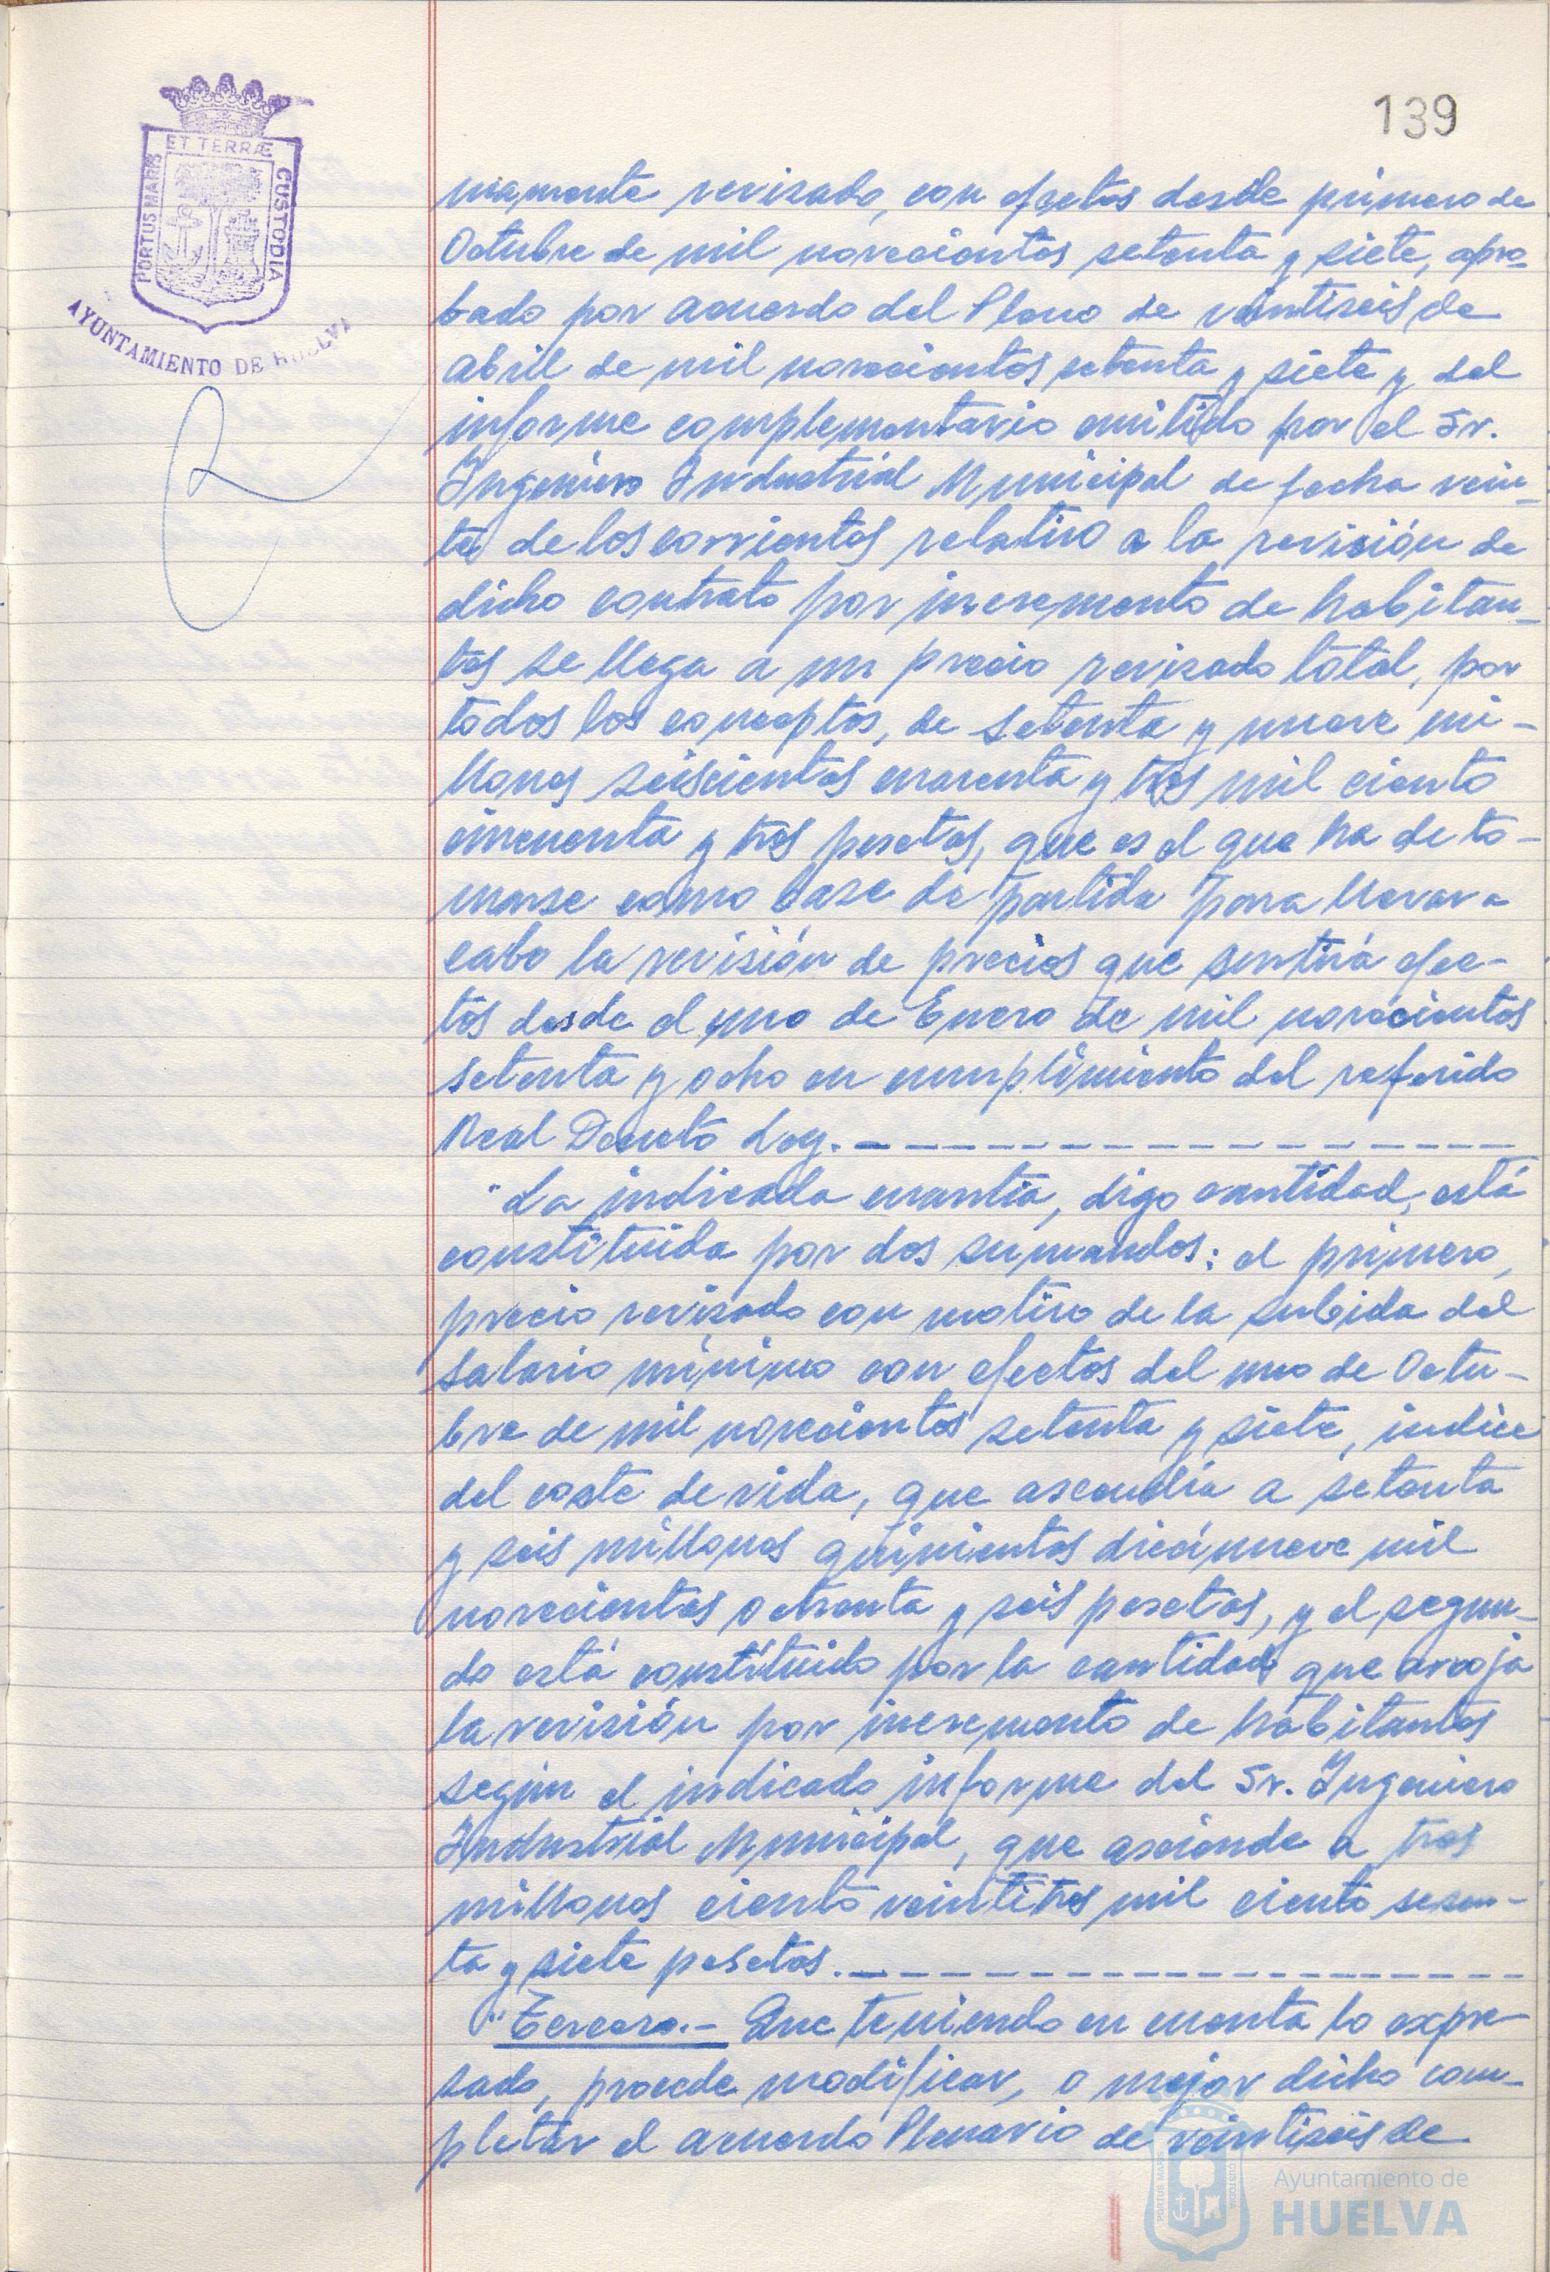 139
ET TERRÆ
PORTUS MARIS
CUSTODIA
AYUNTAMIENTO DE HUELVA
mamente revisado, con efectos desde primero de
Octubre de mil novecientos setenta y siete, apro-
bado por acuerdo del Pleno de veintiseis de
abril de mil novecientos setenta y siete y del
informe complementario emitido por el Sr.
Ingeniero Industrial Municipal de fecha vein-
te de los corrientes relativo a la revisión de
dicho contrato por incremento de habitan-
tes se llega a un precio revisado total, por
todos los conceptos, de setenta y nueve mi-
llones seiscientas cuarenta y tres mil ciento
cincuenta y tres pesetas, que es el que ha de to-
marse como base de partida para llevar a
cabo la revisión de precios que surtirá efec-
tos desde el uno de Enero de mil novecientos
setenta y ocho en cumplimiento del referido
Real Decreto Ley. _ _ _ _ _ _ _ _ _ _ _ _ _ _ _ _
"La indicada cuantía, digo cantidad, está
constituida por dos sumandos: el primero,
precio revisado con motivo de la subida del
salario mínimo con efectos del uno de Octu-
bre de mil novecientos setenta y siete, indice
del coste de vida, que ascendía a setenta
y seis millones quinientos diecinueve mil
novecientas ochenta y seis pesetas, y el segun-
do está constituido por la cantidad que arroja
la revisión por incremento de habitantes
según el indicado informe del Sr. Ingeniero
Industrial Municipal, que asciende a tres
millones ciento veintitres mil ciento sesen-
ta y siete pesetas. _ _ _ _ _ _ _ _ _ _ _ _ _ _ _ _
"Tercero.- Que teniendo en cuenta lo expre-
sado, procede modificar, o mejor dicho com-
pletar el acuerdo Plenario de veintiseis de
Ayuntamiento de
HUELVA